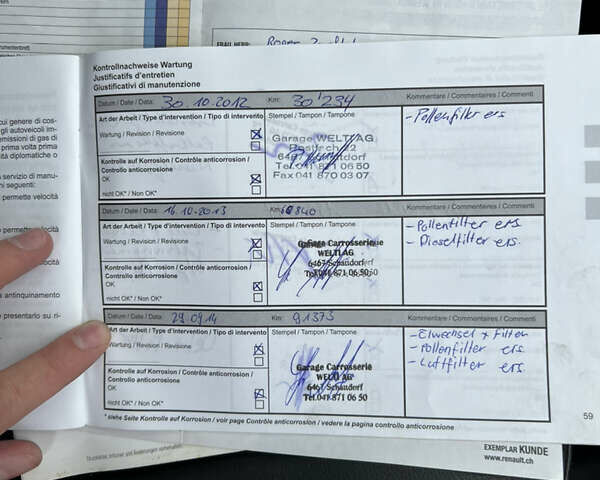 FRAU HERR:
Kontrollnachweise Wartung
Justificatifs d'entretien
Giustificativi di manutenzione
Datum / Date / Data: 30.10.2012 Km: 30'234 Kommentare / Commentaires / Commenti
Art der Arbeit / Type d'intervention / Tipo di intervento Stempel / Tampon / Tampone
- Pollenfilter ers
Wartung / Revision / Revisione
Garage WELTI AG
Kontrolle auf Korrosion / Contrôle anticorrosion /
Controllo anticorrosione
OK
Tel 041 871 06 50
Fax 041 870 03 07
nicht OK* / Non OK*
Datum / Date / Data: 16.10.2013 Km: 840 Kommentare / Commentaires / Commenti
Art der Arbeit / Type d'intervention / Tipo di intervento Stempel / Tampon / Tampone
- Pollenfilter ers.
- Dieselfilter ers.
Wartung / Revision / Revisione
Garage Carrosserie
WELTI AG
6467 Schattdorf
Tel. 041 871 06 50
Kontrolle auf Korrosion / Contrôle anticorrosion /
Controllo anticorrosione
OK
nicht OK* / Non OK*
Datum / Date / Data: 29.09.14 Km: 91373 Kommentare / Commentaires / Commenti
Art der Arbeit / Type d'intervention / Tipo di intervento Stempel / Tampon / Tampone
- Ölwechsel + Filter
- Pollenfilter ers
- Luftfilter ers
Wartung / Revision / Revisione
Garage Carrosserie
WELTI AG
6467 Schattdorf
Tel. 041 871 06 50
Kontrolle auf Korrosion / Contrôle anticorrosion /
Controllo anticorrosione
OK
nicht OK* / Non OK*
* siehe Seite Kontrolle auf Korrosion / voir page Contrôle anticorrosion / vedere la pagina controllo anticorrosione
59
cui genere di cos-
gli autoveicoli im-
emissioni di gas di
prima volta prima
diplomatiche o
servizio di manu-
seguenti:
permette velocità
permette velocità
velocità
antinquinamento
presentarlo su ri-
EXEMPLAR KUNDE
www.renault.ch